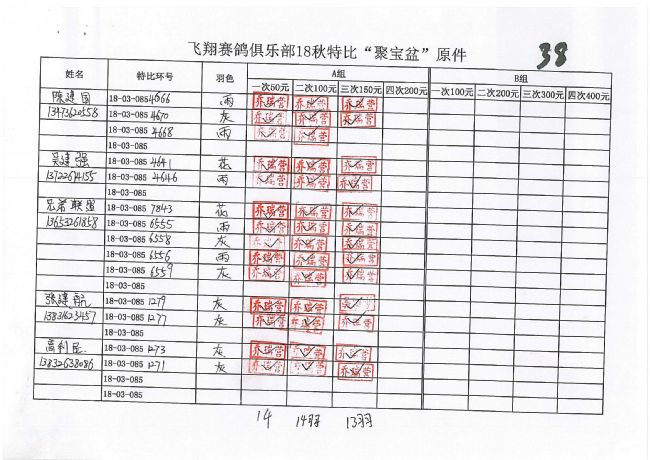 飞翔赛鸽俱乐部18秋特比“聚宝盆”原件 38
姓名 特比环号 羽色 A组 B组
一次50元 二次100元 三次150元 四次200元 一次100元 二次200元 三次300元 四次400元
陈建国 18-03-0854666 雨 乔瑞营 乔瑞营 乔瑞营
13473620558 18-03-085 4670 灰 乔瑞营 乔瑞营 乔瑞营
18-03-085 4668 雨 乔瑞营 乔瑞营
18-03-085
吴建强 18-03-085 4641 花 乔瑞营 乔瑞营 乔瑞营
13722674155 18-03-085 4646 雨 乔瑞营 乔瑞营 乔瑞营
18-03-085
兄弟联盟 18-03-085 7843 花 乔瑞营 乔瑞营 乔瑞营
13653261858 18-03-085 6555 雨 乔瑞营 乔瑞营 乔瑞营
18-03-085 6558 灰 乔瑞营 乔瑞营 乔瑞营
18-03-085 6556 雨 乔瑞营 乔瑞营 乔瑞营
18-03-085 6559 灰 乔瑞营 乔瑞营 乔瑞营
18-03-085
张建 18-03-085 1279 灰 乔瑞营 乔瑞营 乔瑞营
13831623457 18-03-085 1277 灰 乔瑞营 乔瑞营 乔瑞营
18-03-085
高利 18-03-085 1273 灰 乔瑞营 乔瑞营 乔瑞营
13832638086 18-03-085 1271 灰 乔瑞营 乔瑞营 乔瑞营
18-03-085
18-03-085
14 14羽 13羽